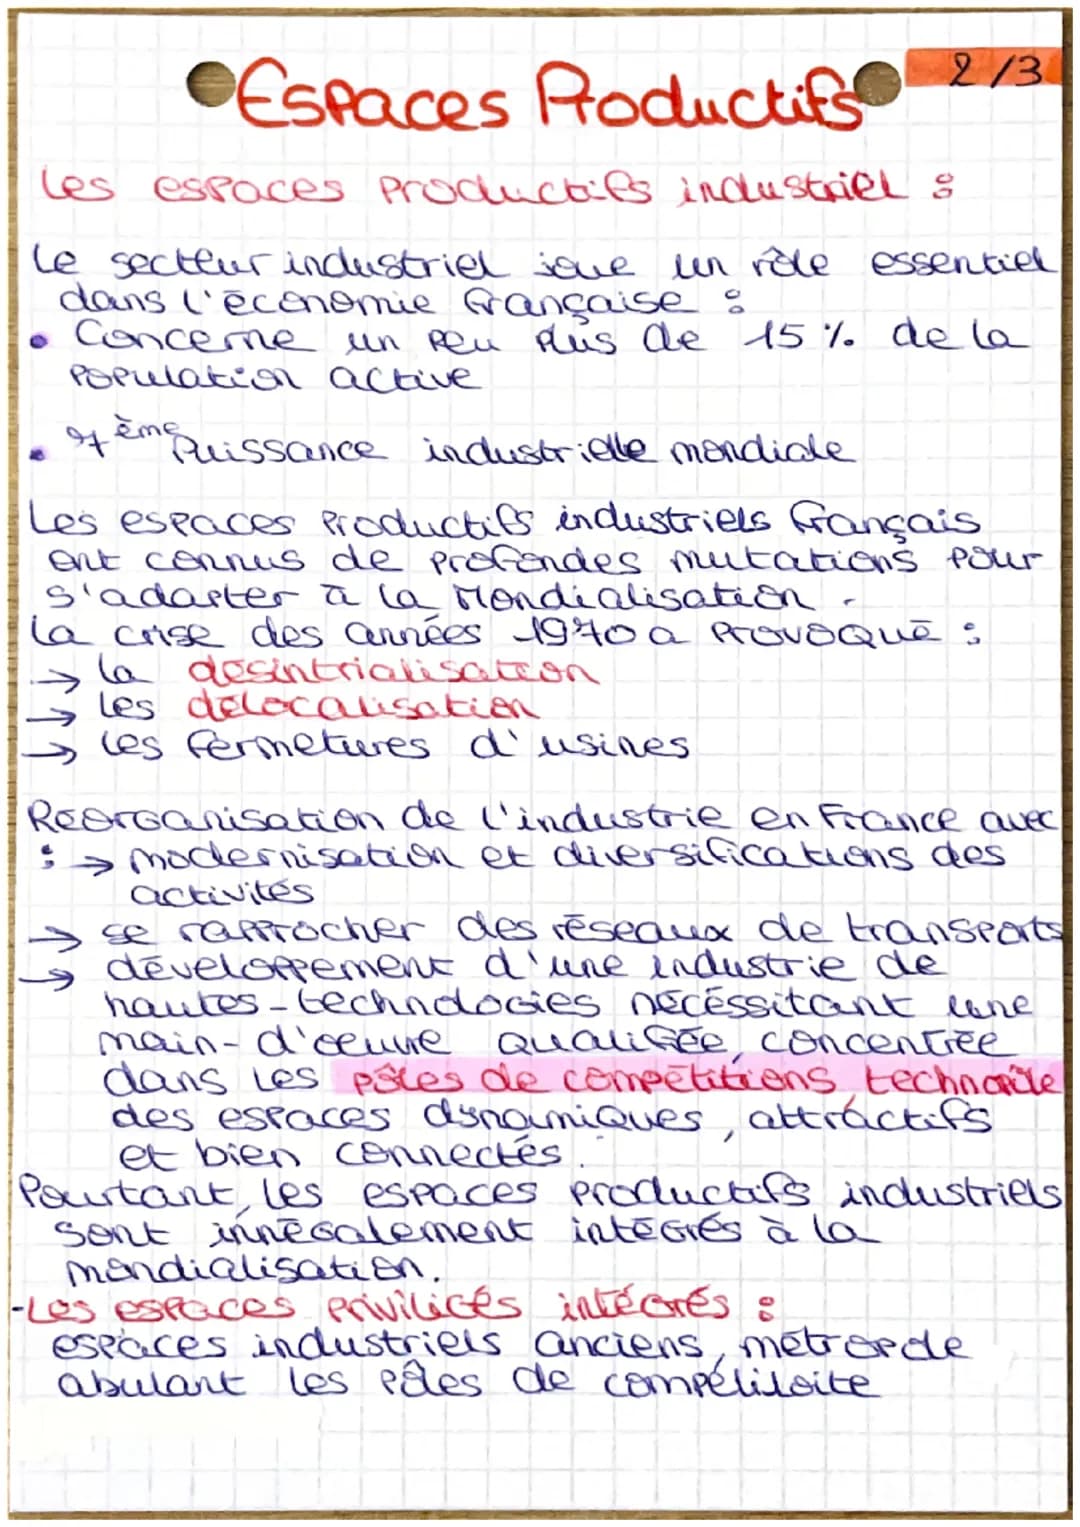 Espaces Productifs
2/3
Les espaces Productifs industriel :
Le secteur industriel joue un rôle essentiel
dans l'économie Française :
• Concerne un peu plus de 15 % de la
Population active
• ème Puissance industrielle mondiale
Les espaces Productifs industriels Français
ont connus de profondes mutations pour
s'adapter à la Mondialisation.
La crise des années 1970 a provoqué :
→ la désintrialisation
→ les délocalisation
→ les fermetures d'usines
Réorganisation de l'industrie en France avec
: → modernisation et diversifications des
activités
→ se rapprocher des réseaux de transports
→ développement d'une industrie de
hautes-technologies nécéssitant une
main-d'œuvre qualifiée, concentrée
dans les pôles de compétitions, technopôle
des espaces dynamiques, attractifs
et bien connectés.
Pourtant, les espaces productifs industriels
sont innégalement intégrés à la
mondialisation.
-Les espaces priviligés intégrés :
espaces industriels anciens, métropole
abulant les pôles de